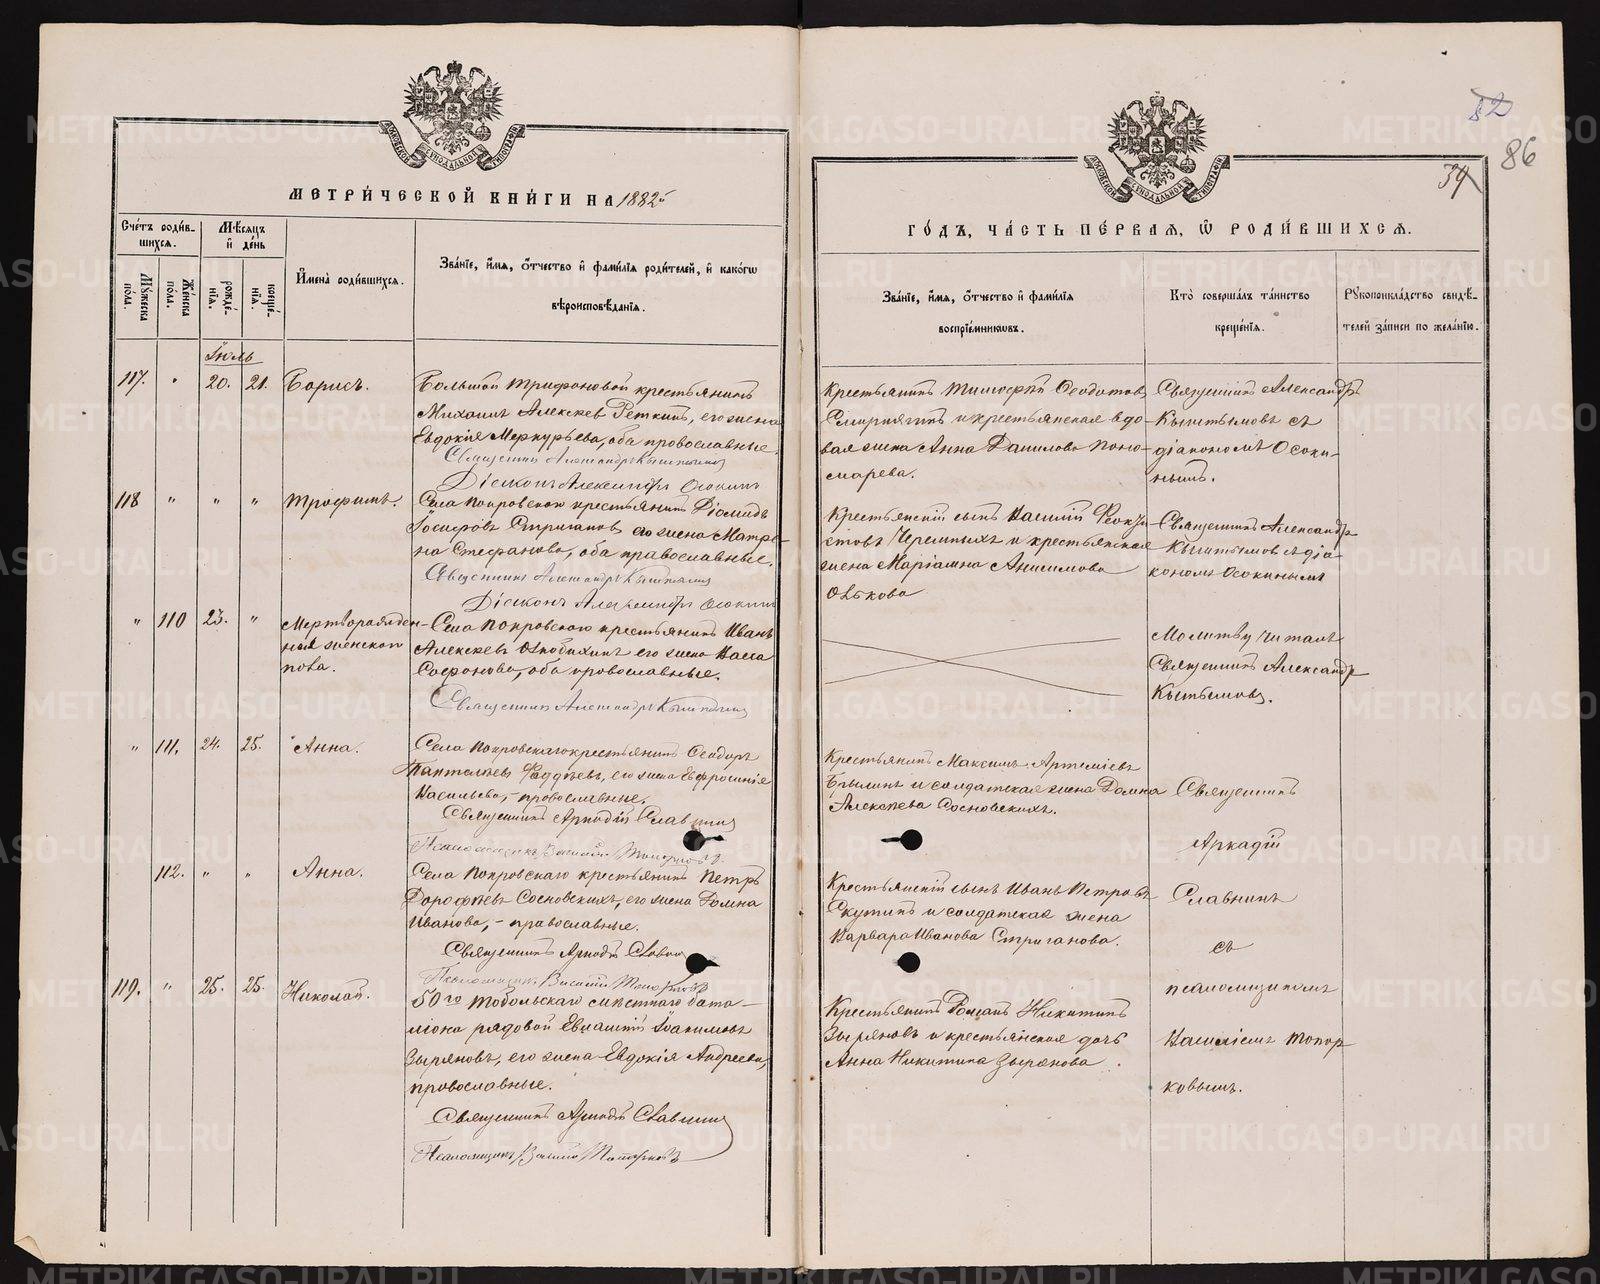 МОСКОВСКОЙ СѴНОДАЛЬНОЙ ТИПОГРАФІИ
МЕТРИ́ЧЕСКОЙ КНИ́ГИ НА 1882й
Сче́тъ роди́в-
шихся.
Мꙋ́жеска по́ла.
Же́нска по́ла.
Мѣ́сяцъ и҆ де́нь
рожде́нїя.
креще́нїя.
И҆мена̀ роди́вшихся.
Зва́нїе, и҆́мя, ѻ҆́тчество и҆ фами́лїя роди́телей, и҆ како́гѡ
вѣроисповѣ́данїя.
Іюль
117. " 20. 21. Борисъ.
Большой Трифоновой крестьянинъ
Михаилъ Алексѣев Реткинъ, его жена
Евдокія Меркурьева, оба провославные.
Священник Александръ Кыштымов
Діаконъ Александръ Осокинъ
118 " " " Трофимъ.
Села Покровского крестьянинъ Діомидъ
Іосифовъ Стригановъ его жена Матре-
на Стефанова, оба православные.
Священникъ Александръ Кыштымов
Діаконъ Александръ Осокинъ
" 110 23. " Мертворожден-
ный женского
пола.
Села Покровского крестьянинъ Иванъ
Алексѣевъ его жена Васса
Софонова, оба провославные.
Священникъ Александръ Кыштымов
" 111. 24. 25. Анна.
Села Покровскаго крестьянинъ Ѳеодоръ
Пантелѣевъ Фаддѣевъ, его жена Евфросинія
Васильева, - провославные.
Священникъ Аркадій Славнин
Псаломщикъ Василій Топорковъ
112. " " Анна.
Села Покровскаго крестьянинъ Петръ
Дорофѣевъ Сосновскихъ, его жена Домна
Иванова, - православные.
Священникъ Аркадій Славнин
Псаломщикъ Василій Топорковъ
119. " 25. 25. Николай.
50го Тобольскаго мѣстнаго бата-
ліона рядовой Іоакимовъ
Зыряновъ, его жена Евдокія Андреева,
провославные.
Священникъ Аркадій Славнин
Псаломщикъ Василій Топорковъ
52
86
39
МОСКОВСКОЙ СѴНОДАЛЬНОЙ ТИПОГРАФІИ
ГО́ДЪ, ЧА́СТЬ ПЕ́РВАЯ, Ѡ҆ РОДИ́ВШИХСЯ.
Зва́нїе, и҆́мя, ѻ҆́тчество и҆ фами́лїя
воспрїе́мникѡвъ.
Кто̀ соверша́лъ та́инство
креще́нїя.
Рꙋкоприкла́дство свидѣ́-
телей за́писи по жела́нїю.
Крестьянинъ Тимофѣй Ѳеодотовъ
Смирнягинъ и крестьянская вдо-
вая жена Анна Данилова Поно-
марева.
Священникъ Александръ
Кыштымовъ съ
діакономъ Осоки-
нымъ.
Крестьянскій сынъ Василій Ѳеокти-
стовъ Черемныхъ и крестьянская
жена Маріамна Анисимова
Священникъ Александръ
Кыштымов съ діа-
кономъ Осокинымъ
Молитву читалъ
Священникъ Александр
Кыштымовъ.
Крестьянинъ Максимъ Артеміевъ
Брылинъ и солдатская жена Домна
Алексѣева Сосновскихъ.
Священникъ
Аркадій
Крестьянскій сынъ Иванъ Петровъ
Скутинъ и солдатская жена
Варвара Иванова Стриганова.
Славнинъ
съ
псаломщикомъ
Крестьянинъ Романъ Никитинъ
Зыряновъ и крестьянская дочь
Анна Никитина Зырянова.
Василіемъ Топор-
ковымъ.
METRIKI.GASO-URAL.RU